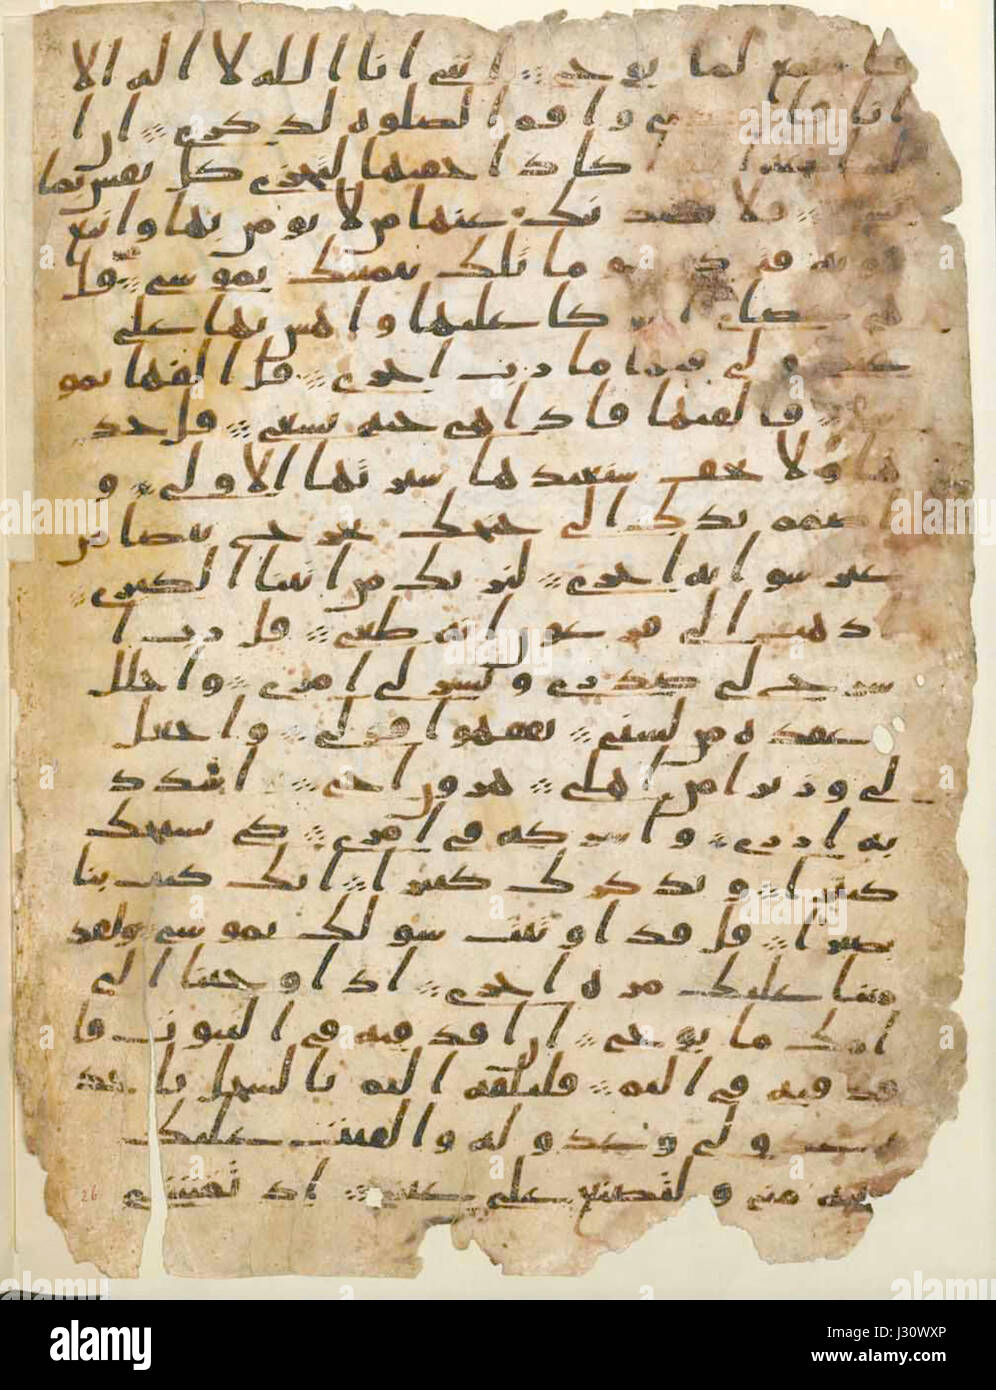 فاستمع لما يوحى انني انا الله لا اله الا
انا فا واقم الصلوه لذكري ان ا
لساعه كاد اخفيها لتجزى كل نفس بما
فلا يصدنك عنها من لا يومن بها واتبع
هويه فتردى وما تلك بيمينك يموسى قل
هي عصاي كا عليها واهش بها على
غنمي ولي فيها مارب اخرى قل القها يمو
فالقيها فاذا هي حيه تسعى قل خذ
ها ولا تخف سنعيدها سيرتها الاولى و
اضمم يدك الى جنحك تخرج بيضا من
غير سو ايه اخرى لنريك من ايتنا الكبرى
اذهب الى فرعون انه طغى قل رب ا
شرح لي صدري ويسر لي امري واحلل
عقده من لسني يفقهوا قولي واجعل
لي وزيرا من اهلي هرون اخي اشدد
به ازري واشركه في امري كي نسبحك
كثيرا ونذكرك كثيرا انك كنت بنا
بصيرا قل قد اوتيت سولك يموسى ولقد
مننا عليك مره اخرى اذ اوحينا الى
امك ما يوحى ان اقذفيه في التبوت فا
قذفيه في اليم فليلقه اليم بالسحل ياخذ
ه عدو لي وعدو له والقيت عليك
محبه مني ولتصنع على عيني اذ تمشي
26
alamy
Image ID: J30WXP
www.alamy.com